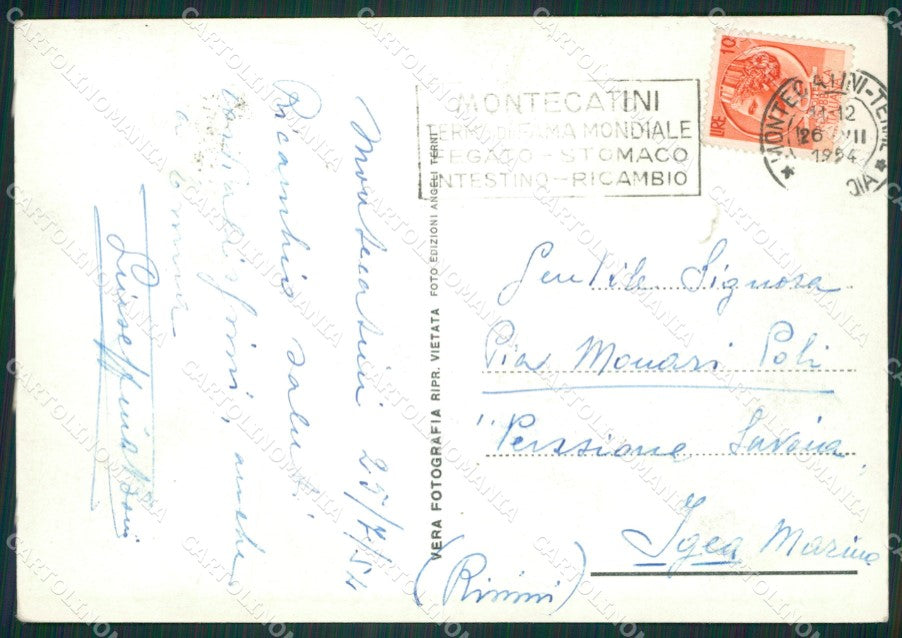 MONTECATINI
TERME DI FAMA MONDIALE
FEGATO - STOMACO
INTESTINO - RICAMBIO
LIRE 10
MONTECATINI-TERME
11-12
26 VII
1954
Gentile Signora
Pia Monari Poli
"Pensione Savoia
Igea Marina
(Rimini)
VERA FOTOGRAFIA RIPR. VIETATA FOTO EDIZIONI ANGELI TERNI
Montecatini 25/7/54
Ricambio saluti
cordialissimi, anche
a
Giuseppina
CARTOLINOMANIA